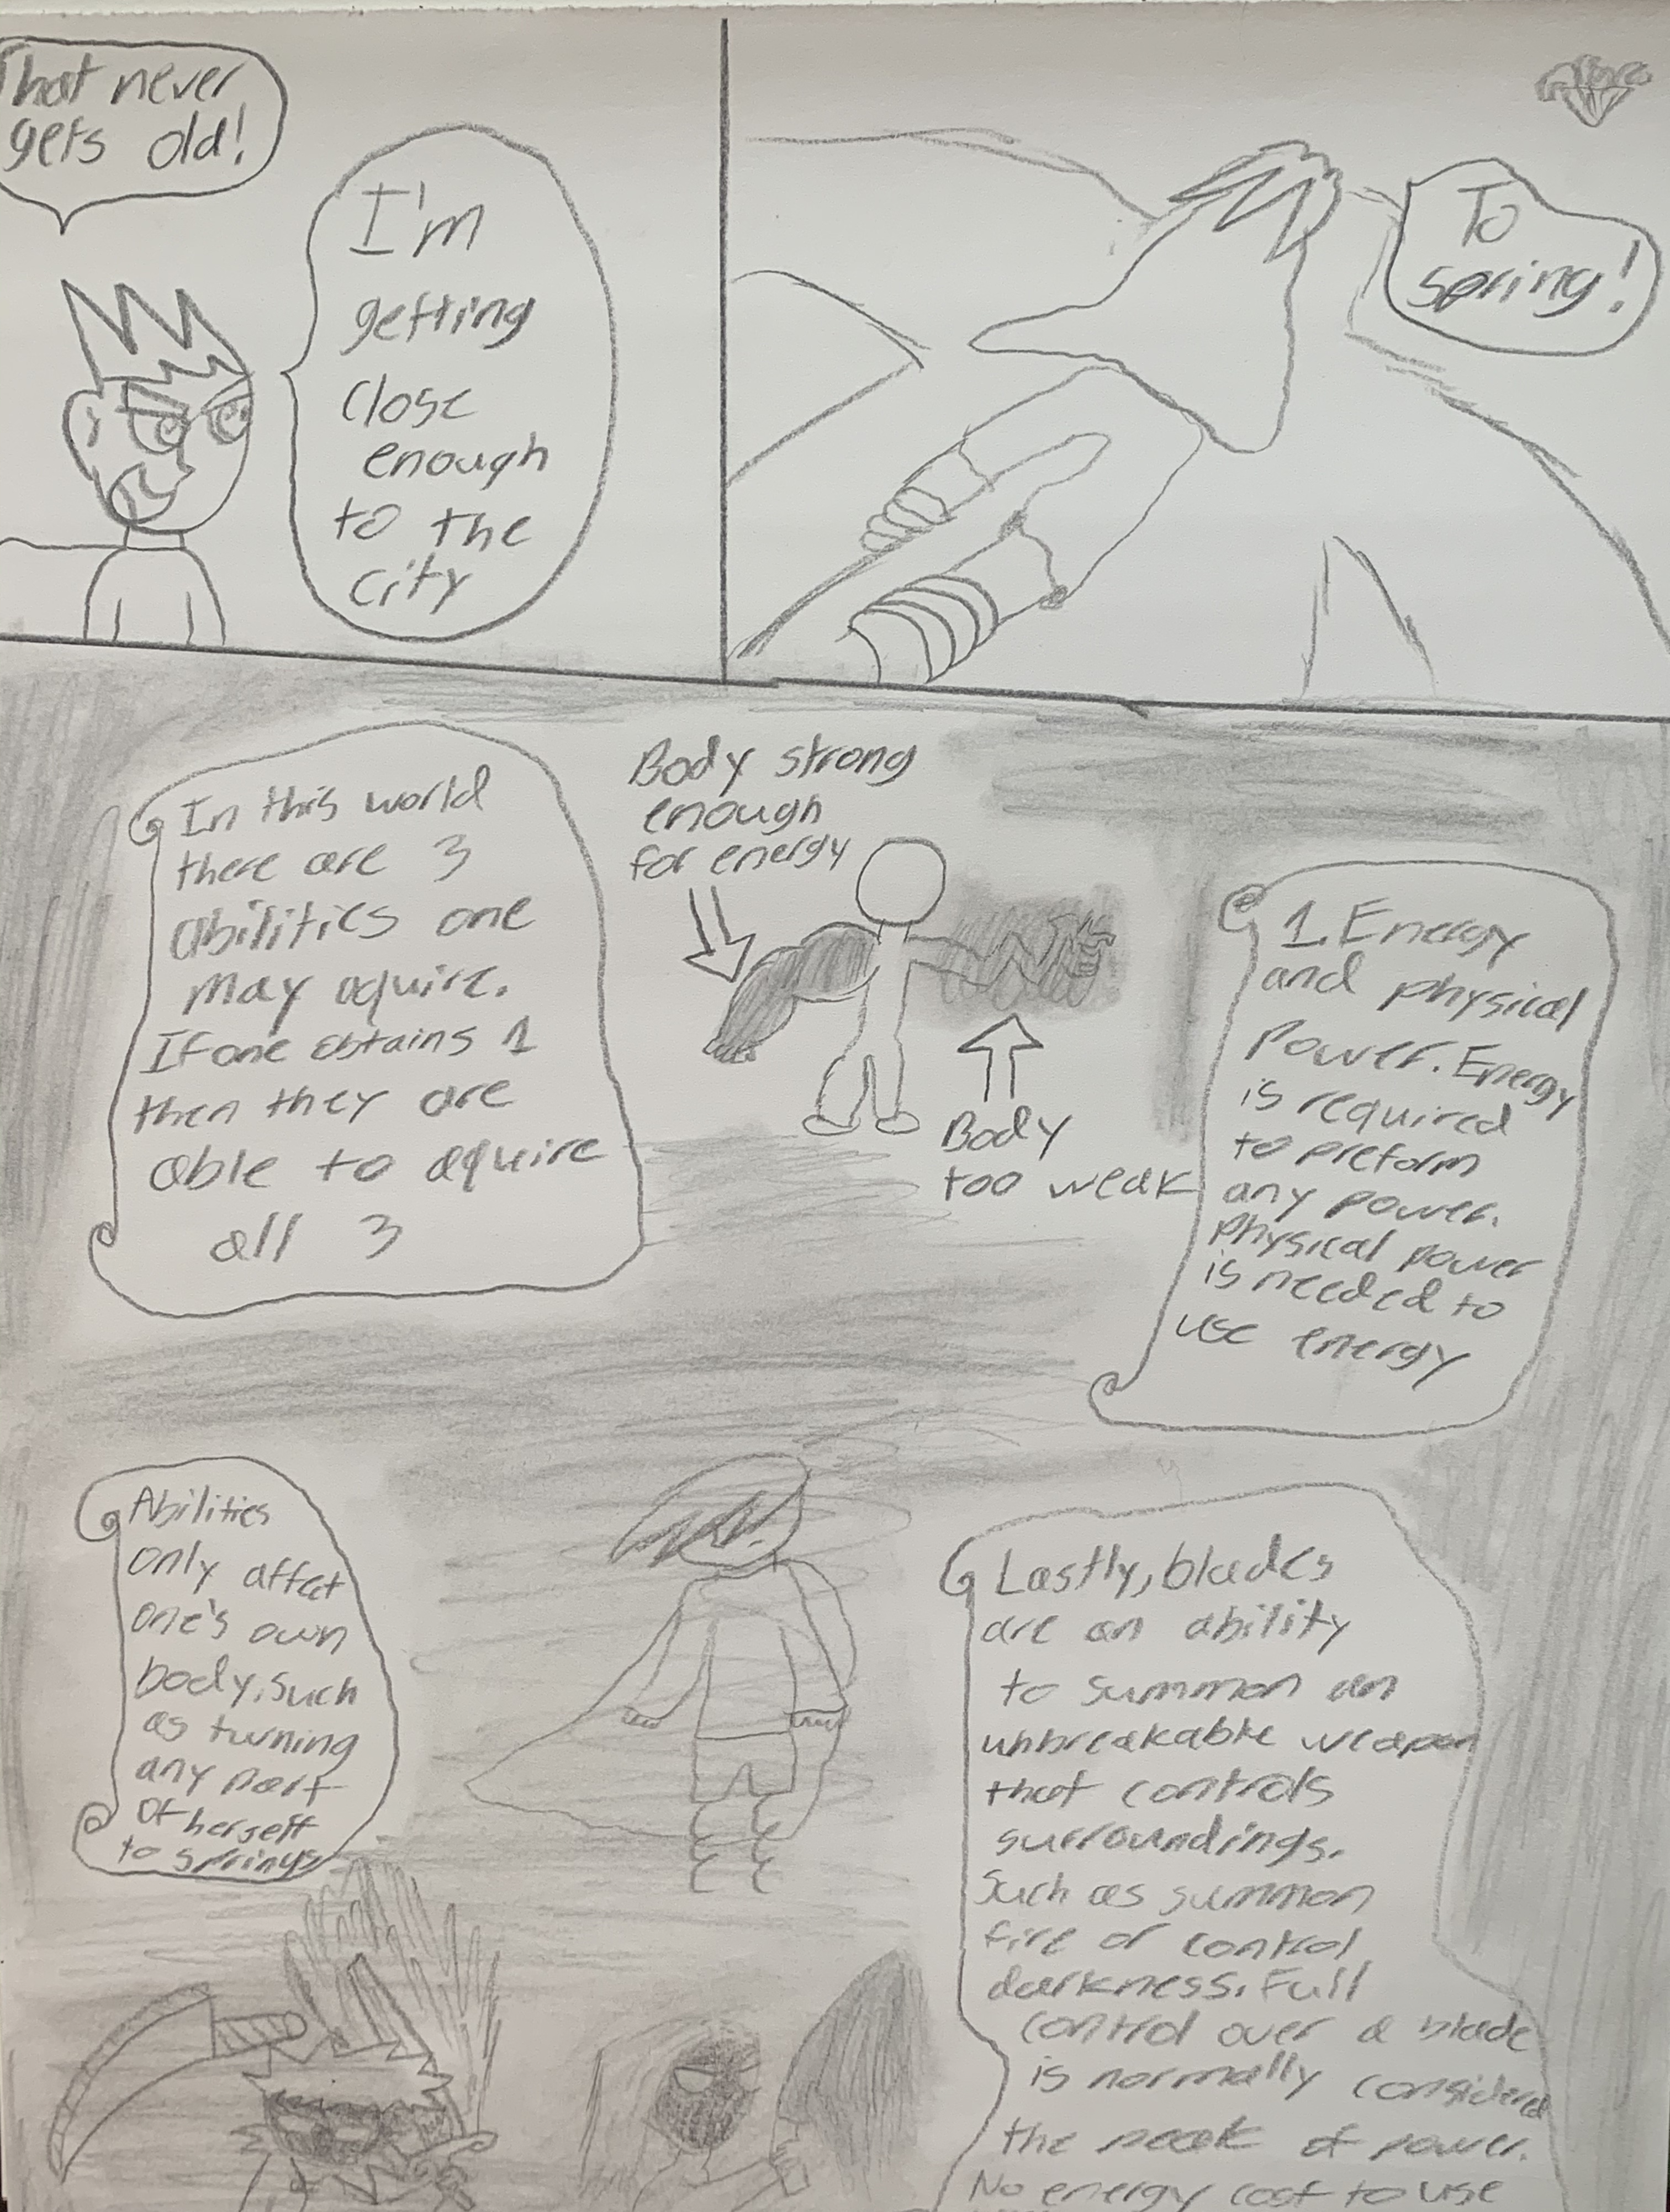 That never
gets old!
I'm
getting
close
enough
to the
city
To
spring!
In this world
there are 3
abilities one
may aquire.
If one obtains 1
then they are
able to aquire
all 3
Body strong
enough
for energy
Body
too weak
1. Energy
and physical
Power. Energy
is required
to preform
any power.
Physical power
is needed to
use energy
Abilities
only affect
one's own
body, such
as turning
any part
of herself
to springs
Lastly, blades
are an ability
to summon an
unbreakable weapon
that controls
surroundings.
Such as summon
fire or control
darkness. Full
control over a blade
is normally considered
the peak of power.
No energy cost to use